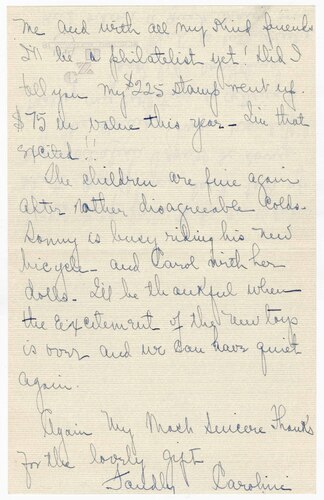 me and with all my kind friends
I'll be a philatelist yet! Did I
tell you my $225 stamp went up
$75 in value this year - I'm that
excited!!
The children are fine again
after rather disagreeable colds.
Sonny is busy riding his new
bicycle - and Carol with her
dolls. I'll be thankful when
the excitement of the new toys
is over and we can have quiet
again.
Again my most sincere thanks
for the lovely gift
Fondly Caroline